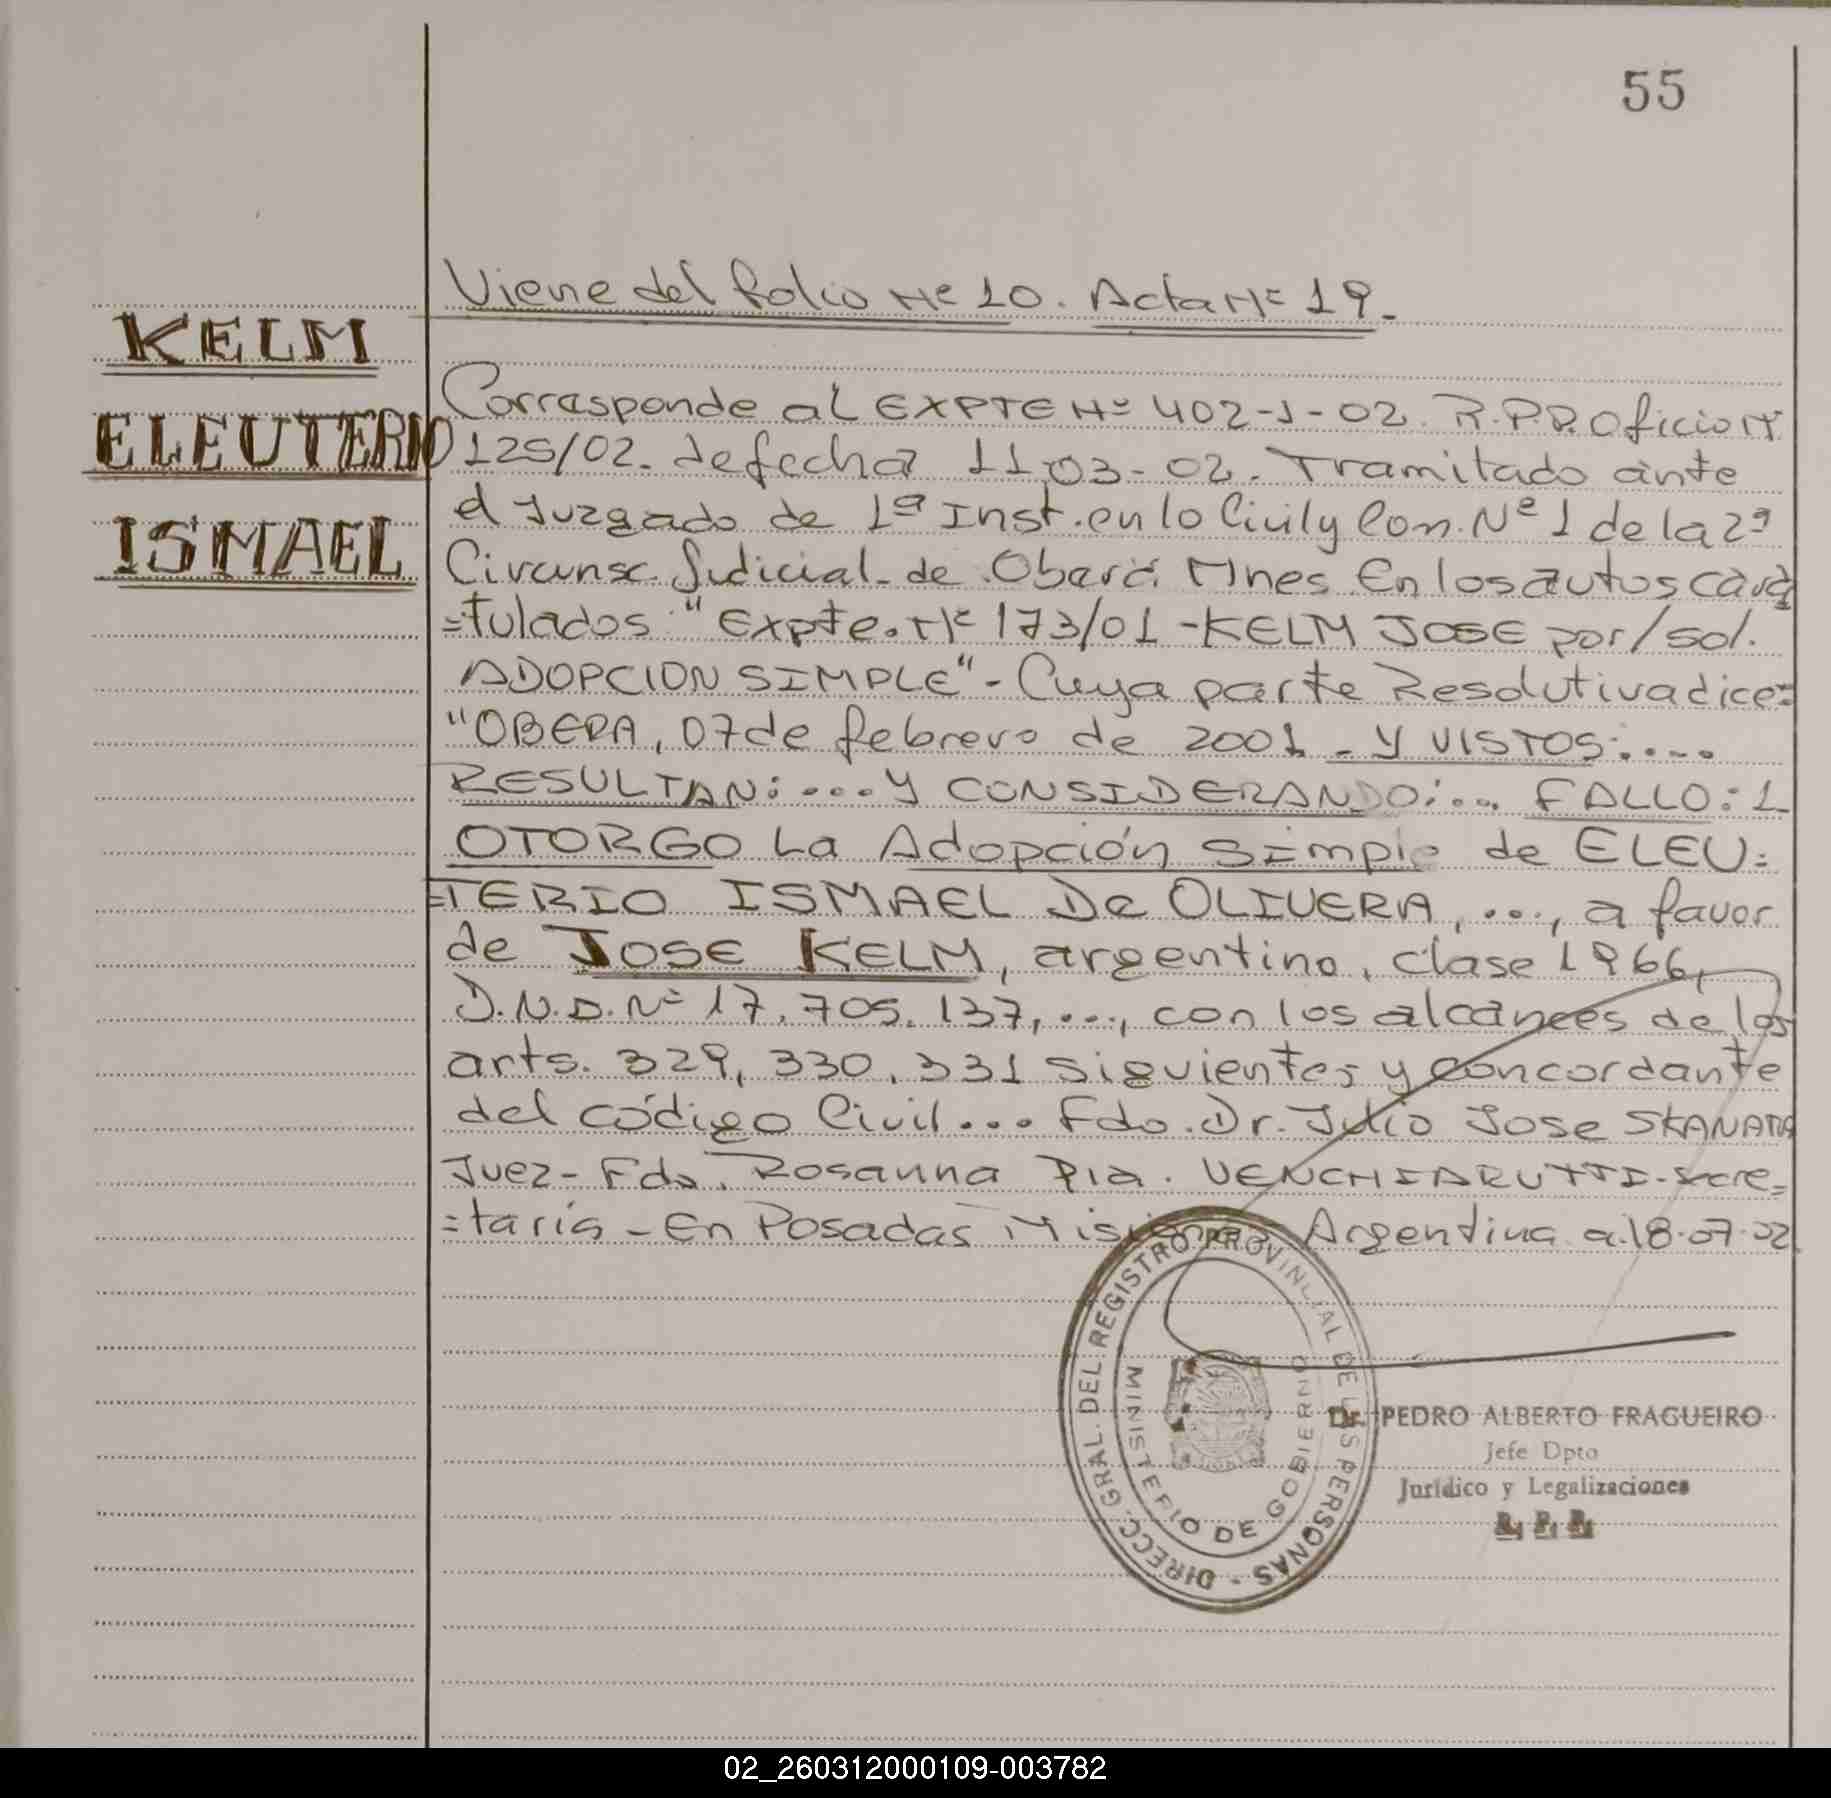 55
Viene del folio Nº 10. Acta Nº 19.-
KELM
ELEUTERIO
ISMAEL
Corresponde al EXPTE Nº 402-J-02. R.P.P. Oficio Nº
125/02. de fecha 11-03-02. Tramitado ante
el Juzgado de 1ª Inst. en lo Civil y Com. Nº 1 de la 2ª
Circunsc. Judicial de Oberá Mnes. En los autos cara
=tulados "Expte. Nº 173/01-KELM JOSE por/sol.
ADOPCION SIMPLE"- Cuya parte Resolutiva dice=
"OBERA, 07 de febrero de 2001.- Y VISTOS:....
RESULTAN:....Y CONSIDERANDO:... FALLO: 1
OTORGO La Adopción Simple de ELEU=
=TERIO ISMAEL De OLIVERA, ..., a favor
de JOSE KELM, argentino, clase 1966,
D.N.I. Nº 17.705.137, ..., con los alcances de los
arts. 329, 330, 331 siguientes y concordante
del código Civil... Fdo. Dr. Julio Jose SKANATA
Juez- Fdo. Rosanna Pia. VENCHIARUTTI-Secre=
=taria - En Posadas Misiones Argentina a 18-07-02
DIRECC. GRAL. DEL REGISTRO PROVINCIAL DE LAS PERSONAS -
MINISTERIO DE GOBIERNO
Dr. PEDRO ALBERTO FRAGUEIRO
Jefe Dpto
Jurídico y Legalizaciones
R. P. P.
02_260312000109-003782